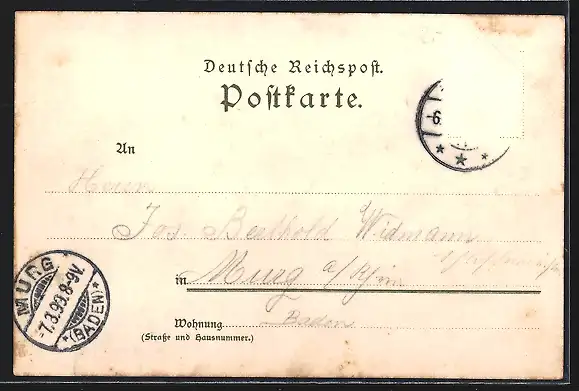 Deutsche Reichspost.
Postkarte.
An
Herrn
Jos. Berthold Widmann
in Murg a/Rhein
Wohnung Baden
(Straße und Hausnummer.)
MURG
7.3.99.8-9V.
* (BADEN) *
6.